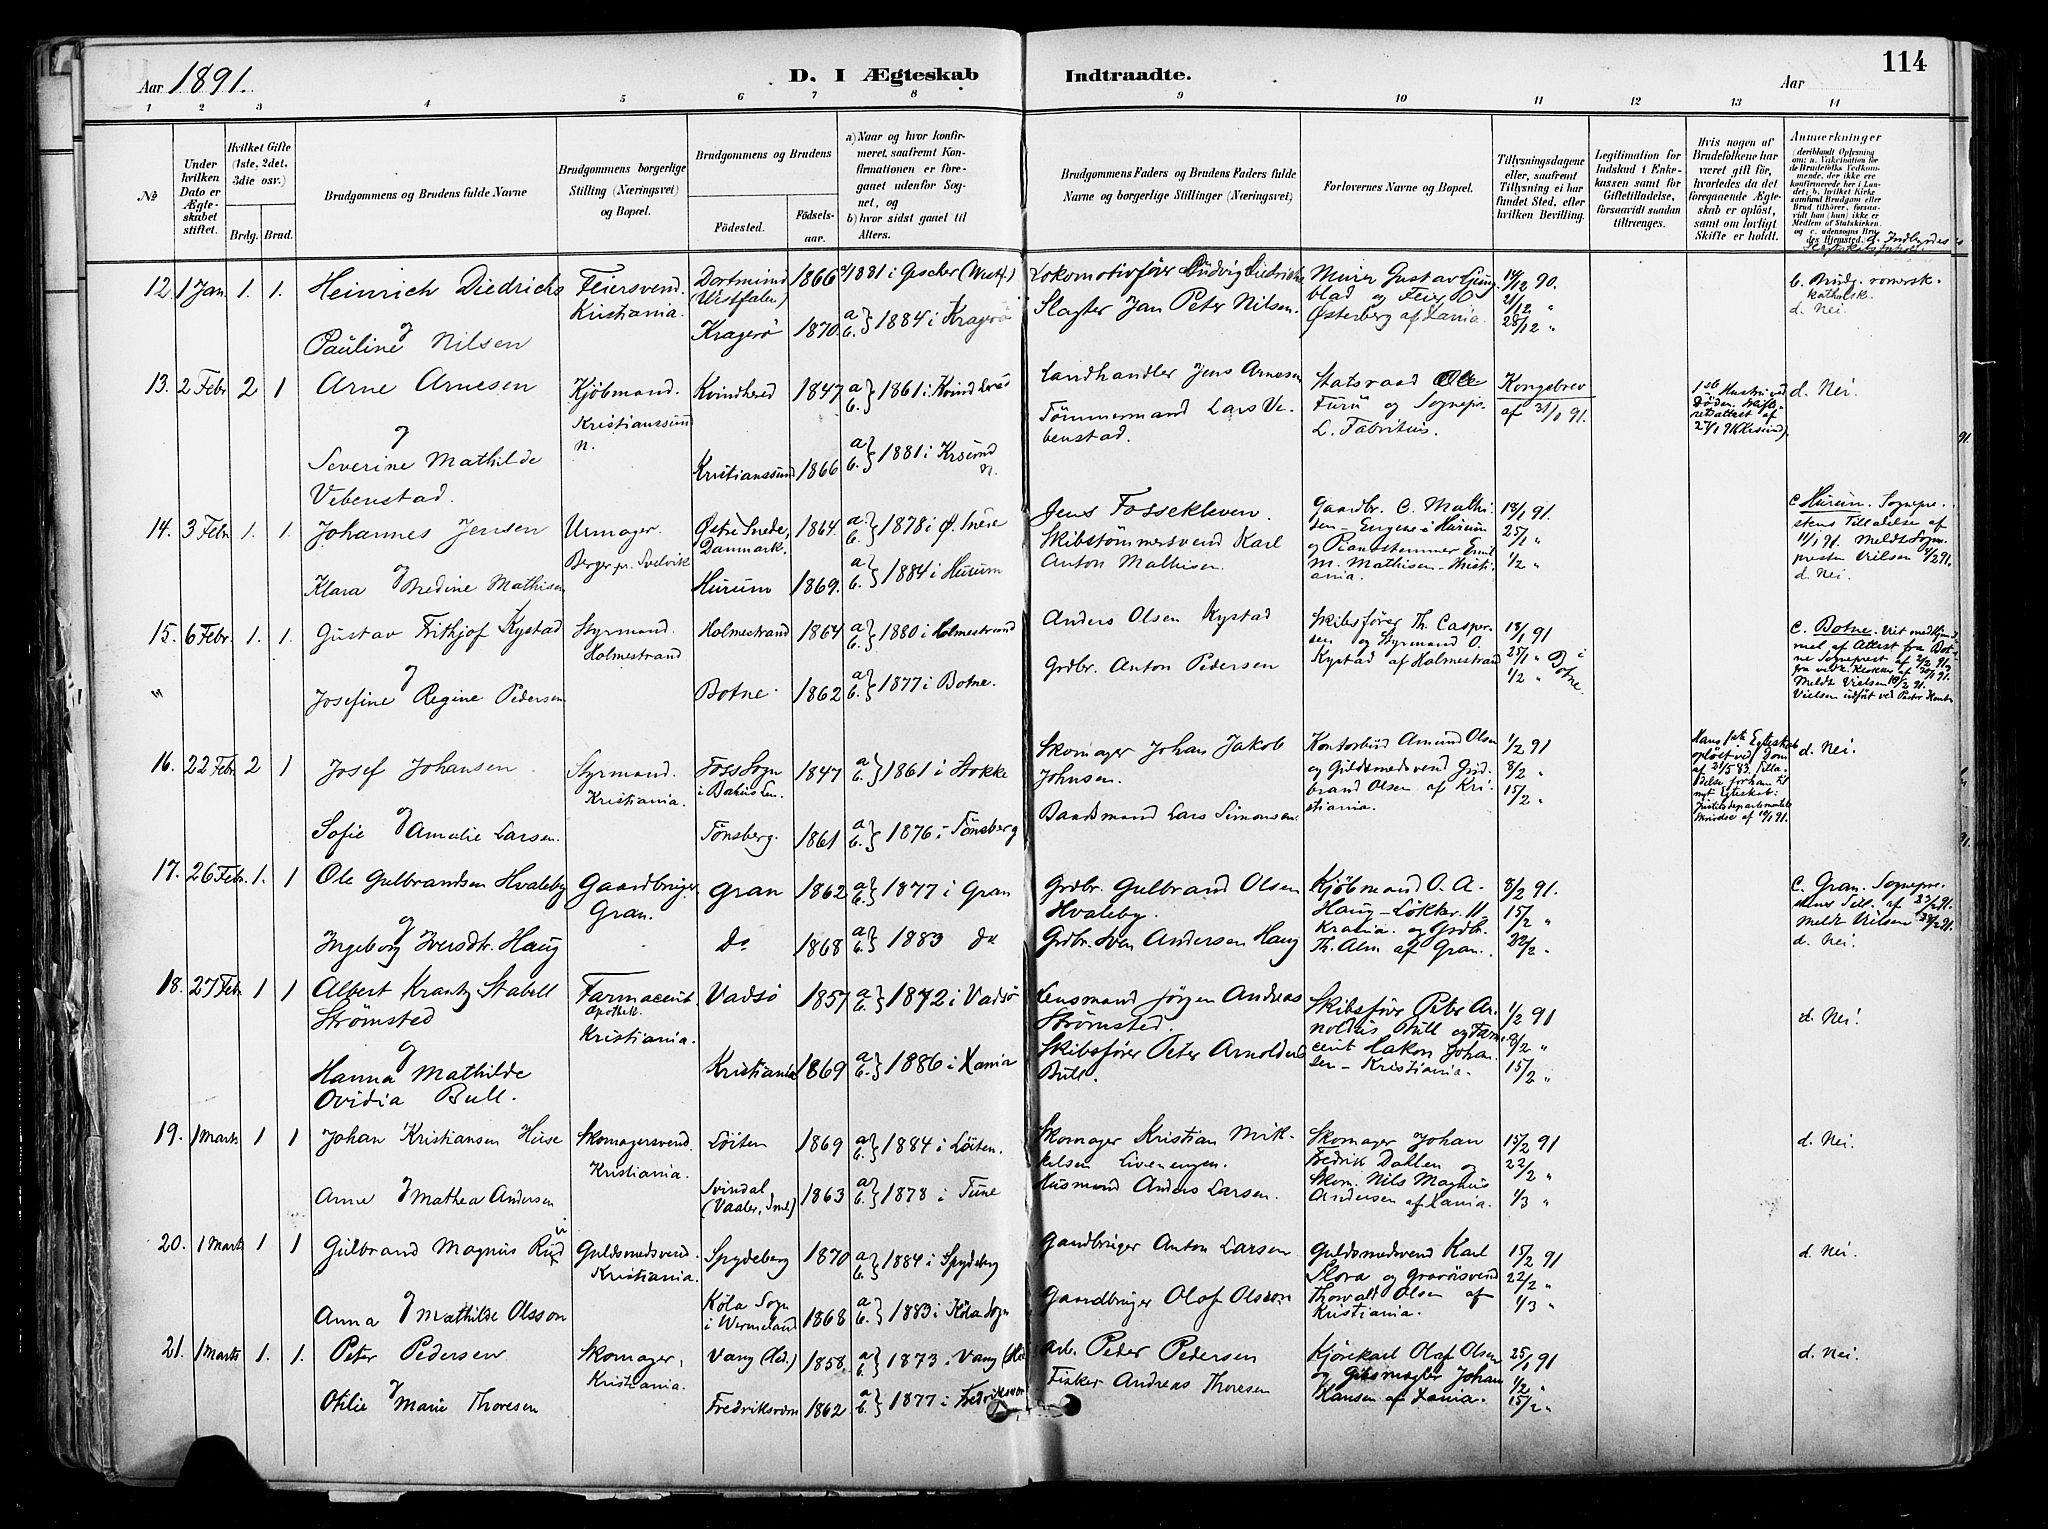 114
Aar 1891.
D. I Ægteskab Indtraadte.
Aar
1 2 3 4 5 6 7 8 9 10 11 12 13 14
No
Under hvilken Dato er Ægteskabet stiftet.
Hvilket Gifte (1ste, 2det, 3die osv.)
Brdg. Brud.
Brudgommens og Brudens fulde Navne
Brudgommens borgerlige Stilling (Næringsvei) og Bopæl.
Brudgommens og Brudens
Fødested.
Fødselsaar.
a) Naar og hvor konfirmeret, saafremt Konfirmationen er foreganet udenfor Sognet, og
b) hvor sidst gaaet til Alters.
Brudgommens Faders og Brudens Faders fulde Navne og borgerlige Stillinger (Næringsvei)
Forlovernes Navne og Bopæl.
Tillysningsdagene eller, saafremt Tillysning ei har fundet Sted, efter hvilken Bevilling.
Legitimation for Indskud i Enkekassen samt for Giftetilladelse, forsaavidt saadan tiltrænges.
Hvis nogen af Brudefolkene har været gift før, hvorledes da det foregaaende Ægteskab er opløst, samt om lovligt Skifte er holdt.
Anmærkninger
12. 1 Jan. 1. 1. Heinrich Diedrichs Feiersvend. Kristiania. Dortmund (Westfalen) 1866 a/1881 i Gescher (Westf.) Lokomotivfører Ludvig Diedrichs
og
Pauline Nilsen Kragerö 1870. a b. } 1884 i Kragerö Slagter Jan Peter Nilsen.
Murer Gustav Ljungblad og Feier O. Østerberg af Xania. 14/12 90. 21/12 " 28/12 "
b. Brudg. romersk-katholsk. d. Nei.
13. 2 Febr 2 1 Arne Arnesen Kjøbmand. Kristianssund n. Kvindhered 1847 a b. } 1861 i Kvindhered Landhandler Jens Arnesen
og
Severine Mathilde Vebenstad. Kristianssund 1866 a b. } 1881 i Krsund n. Tömmermand Lars Vebenstad.
Statsraad Ole Furu og Sognepr. L. Fabritius. Kongebrev af 31/1 91.
1ste Hustru ved Døden. Skifteretsattest af 27/1 91 (Krsund). d. Nei.
14. 3 Febr 1. 1. Johannes Jensen Urmager. Berger pr. Svelvik Østre Snede, Danmark. 1864. a. b. } 1878 i Ø. Snede Jens Fossekleven.
og
Klara Bredine Mathisen Hurum 1869. a b. } 1884 i Hurum Skibstømmersvend Karl Anton Mathisen.
Gaardbr. C. Mathisen - Engene i Hurum og Pianostemmer Emil M. Mathisen - Kristiania. 18/1 91. 25/1 " 1/2 "
c. Hurum. Sogneprestens Tilladelse af 11/1 91. Meldt Sognepresten Vielsen 4/2 91. d. Nei.
15. 6 Febr. 1. 1. Gustav Frithjof Kystad Styrmand. Holmestrand Holmestrand 1864 a b. } 1880 i Holmestrand Anders Olsen Kystad
og
" Josefine Regine Pedersen Botne. 1862 a b. } 1877 i Botne. Grdbr. Anton Pedersen
Skibsfører Th. Caspersen og Styrmand O. Kystad af Holmestrand 18/1 91 25/1 " 1/2 " i Botne.
c. Botne.
16. 22 Febr. 2 1 Josef Johansen. Styrmand. Kristiania. Foss Sogn i Bahus Len. 1847 a b. } 1861 i Stokke Skomager Johan Jakob Johnsen.
og
Sofie Amalie Larsen. Tönsberg. 1861 a b. } 1876 i Tönsberg Baadsmand Lars Simonsen.
Kontorbud Amund Olsen og Guldsmedsvend Gudbrand Olsen af Kristiania. 1/2 91 8/2 " 15/2 "
d. Nei.
17. 26 Febr. 1. 1 Ole Gulbrandsen Hvaleby Gaardbruger Gran. Gran 1862 a b. } 1877 i Gran Grdbr. Gulbrand Olsen Hvaleby.
og
Ingeborg Iversdtr. Haug do 1868 a b. } 1883 do Grdbr. Iver Andersen Haug
Kjøbmand O. A. Haug - Løkkev. 11, Krania. og Grdbr. Th. Alm af Gran. 8/2 91. 15/2 " 22/2 "
c. Gran. Sogneprestens Till. af 23/2 91. Meldt Vielsen 28/2 91. d. Nei.
18. 27 Febr 1 1 Albert Krantz Stabell Strømsted Farmaceut. Apothek. Kristiania. Vadsø 1857 a b. } 1872 i Vadsø Lensmand Jørgen Andreas Strømsted.
og
Hanna Mathilde Ovidia Bull. Kristiania 1869 a b. } 1886 i Xania Skibsfører Peter Arnoldus Bull.
Skibsfører Peter Arnoldus Bull og Farmaceut Hakon Johansen - Kristiania. 1/2 91 8/2 " 15/2 "
d. Nei.
19. 1 Marts 1 1 Johan Kristiansen Huse Skomagersvend Kristiania. Løiten 1869 a b. } 1884 i Løiten. Skomager Kristian Mikkelsen Liverengen.
og
Anne Mathea Andersen Svindal (Vaaler, Sml) 1863 a b. } 1878 i Tune Husmand Anders Larsen.
Skomager Johan Fredrik Dahlen og Skom. Nils Magnus Andersen af Xania. 15/2 91 22/2 " 1/3 "
d. Nei.
20. 1 Marts 1 1 Gulbrand Magnus Rud Guldsmedsvend. Kristiania. Spydeberg 1870 a b. } 1884 i Spydeberg Gaardbruger Anton Larsen
og
Anna Mathilde Olsson Köla Sogn i Wermeland 1868 a b. } 1883 i Köla Sogn Gaardbruger Olof Olsson.
Guldsmedsvend Karl Slora og Gravørsvend Thorvald Olsen af Kristiania. 15/2 91 22/2 " 1/3 "
d. Nei.
21. 1 Marts 1. 1. Peter Pedersen Skomager, Kristiania. Vang (Hed.) 1858. a b. } 1873 i Vang (Hed. Arb. Peder Pedersen
og
Otilie Marie Thoresen Fredriksværn 1862 a b. } 1877 i Fredriksvær Fisker Andreas Thoresen
Kjørekarl Olaf Olsen og Johan Hansen af Xania. 25/1 91 1/2 " 15/2 "
d. Nei.